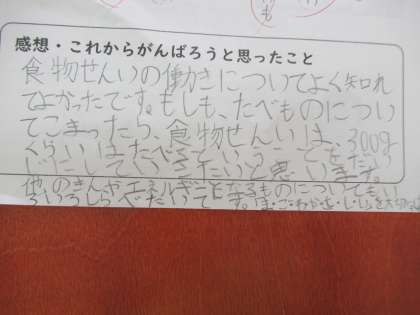 感想・これからがんばろうと思ったこと
食物せんいの働きについてよく知れ
てよかったです。もしも、たべものについ
てこまったら、食物せんいは、300g
くらいはたべるということをだい
じにしていきたいと思います。
他のきんやエネルギーとなるものについてもい
ろいろしらべたいです。